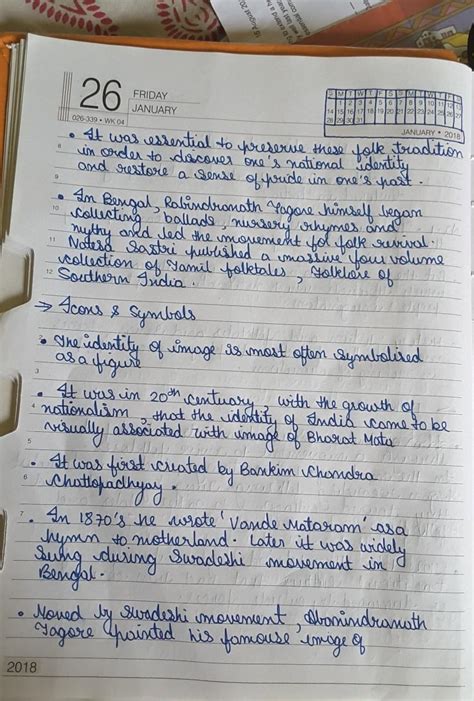 26
FRIDAY
JANUARY
026-339 • WK 04
S M T W T F S S M T W T F S
1 2 3 4 5 6 7 8 9 10 11 12 13
14 15 16 17 18 19 20 21 22 23 24 25 26 27
28 29 30 31
JANUARY • 2018
• It was essential to preserve these folk tradition
8 in order to discover one's national identity
and restore a sense of pride in one's past.
9
• In Bengal, Rabindranath Tagore himself began
10 collecting ballads, nursery rhymes and
myths and led the movement for folk revival.
11 Natesa Sastri published a massive four volume
collection of Tamil folktales, Folklore of
12 Southern India.
→ Icons & Symbols
• The identity of image is most often symbolised
as a figure
3
• It was in 20th centuary, with the growth of
4 nationalism, that the identity of India came to be
visually associated with image of Bharat Mata
5
• It was first created by Bankim Chandra
6 Chattopadhyay.
7 • In 1870's he wrote 'Vande Mataram' as a
hymn to motherland. Later it was widely
sung during Swadeshi movement in
Bengal.
• Moved by swadeshi movement, Abanindranath
Tagore painted his famouse image of
2018